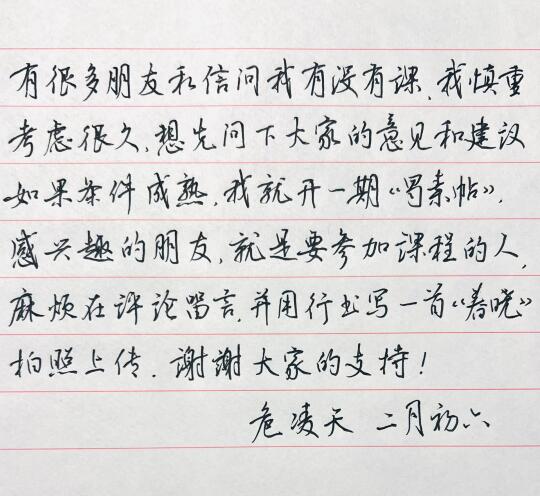 有很多朋友私信问我有没有课,我慎重
考虑很久,想先问下大家的意见和建议
如果条件成熟,我就开一期《蜀素帖》.
感兴趣的朋友,就是要参加课程的人,
麻烦在评论留言,并用行书写一首《春晓》
拍照上传.谢谢大家的支持!
危凌天 二月初六